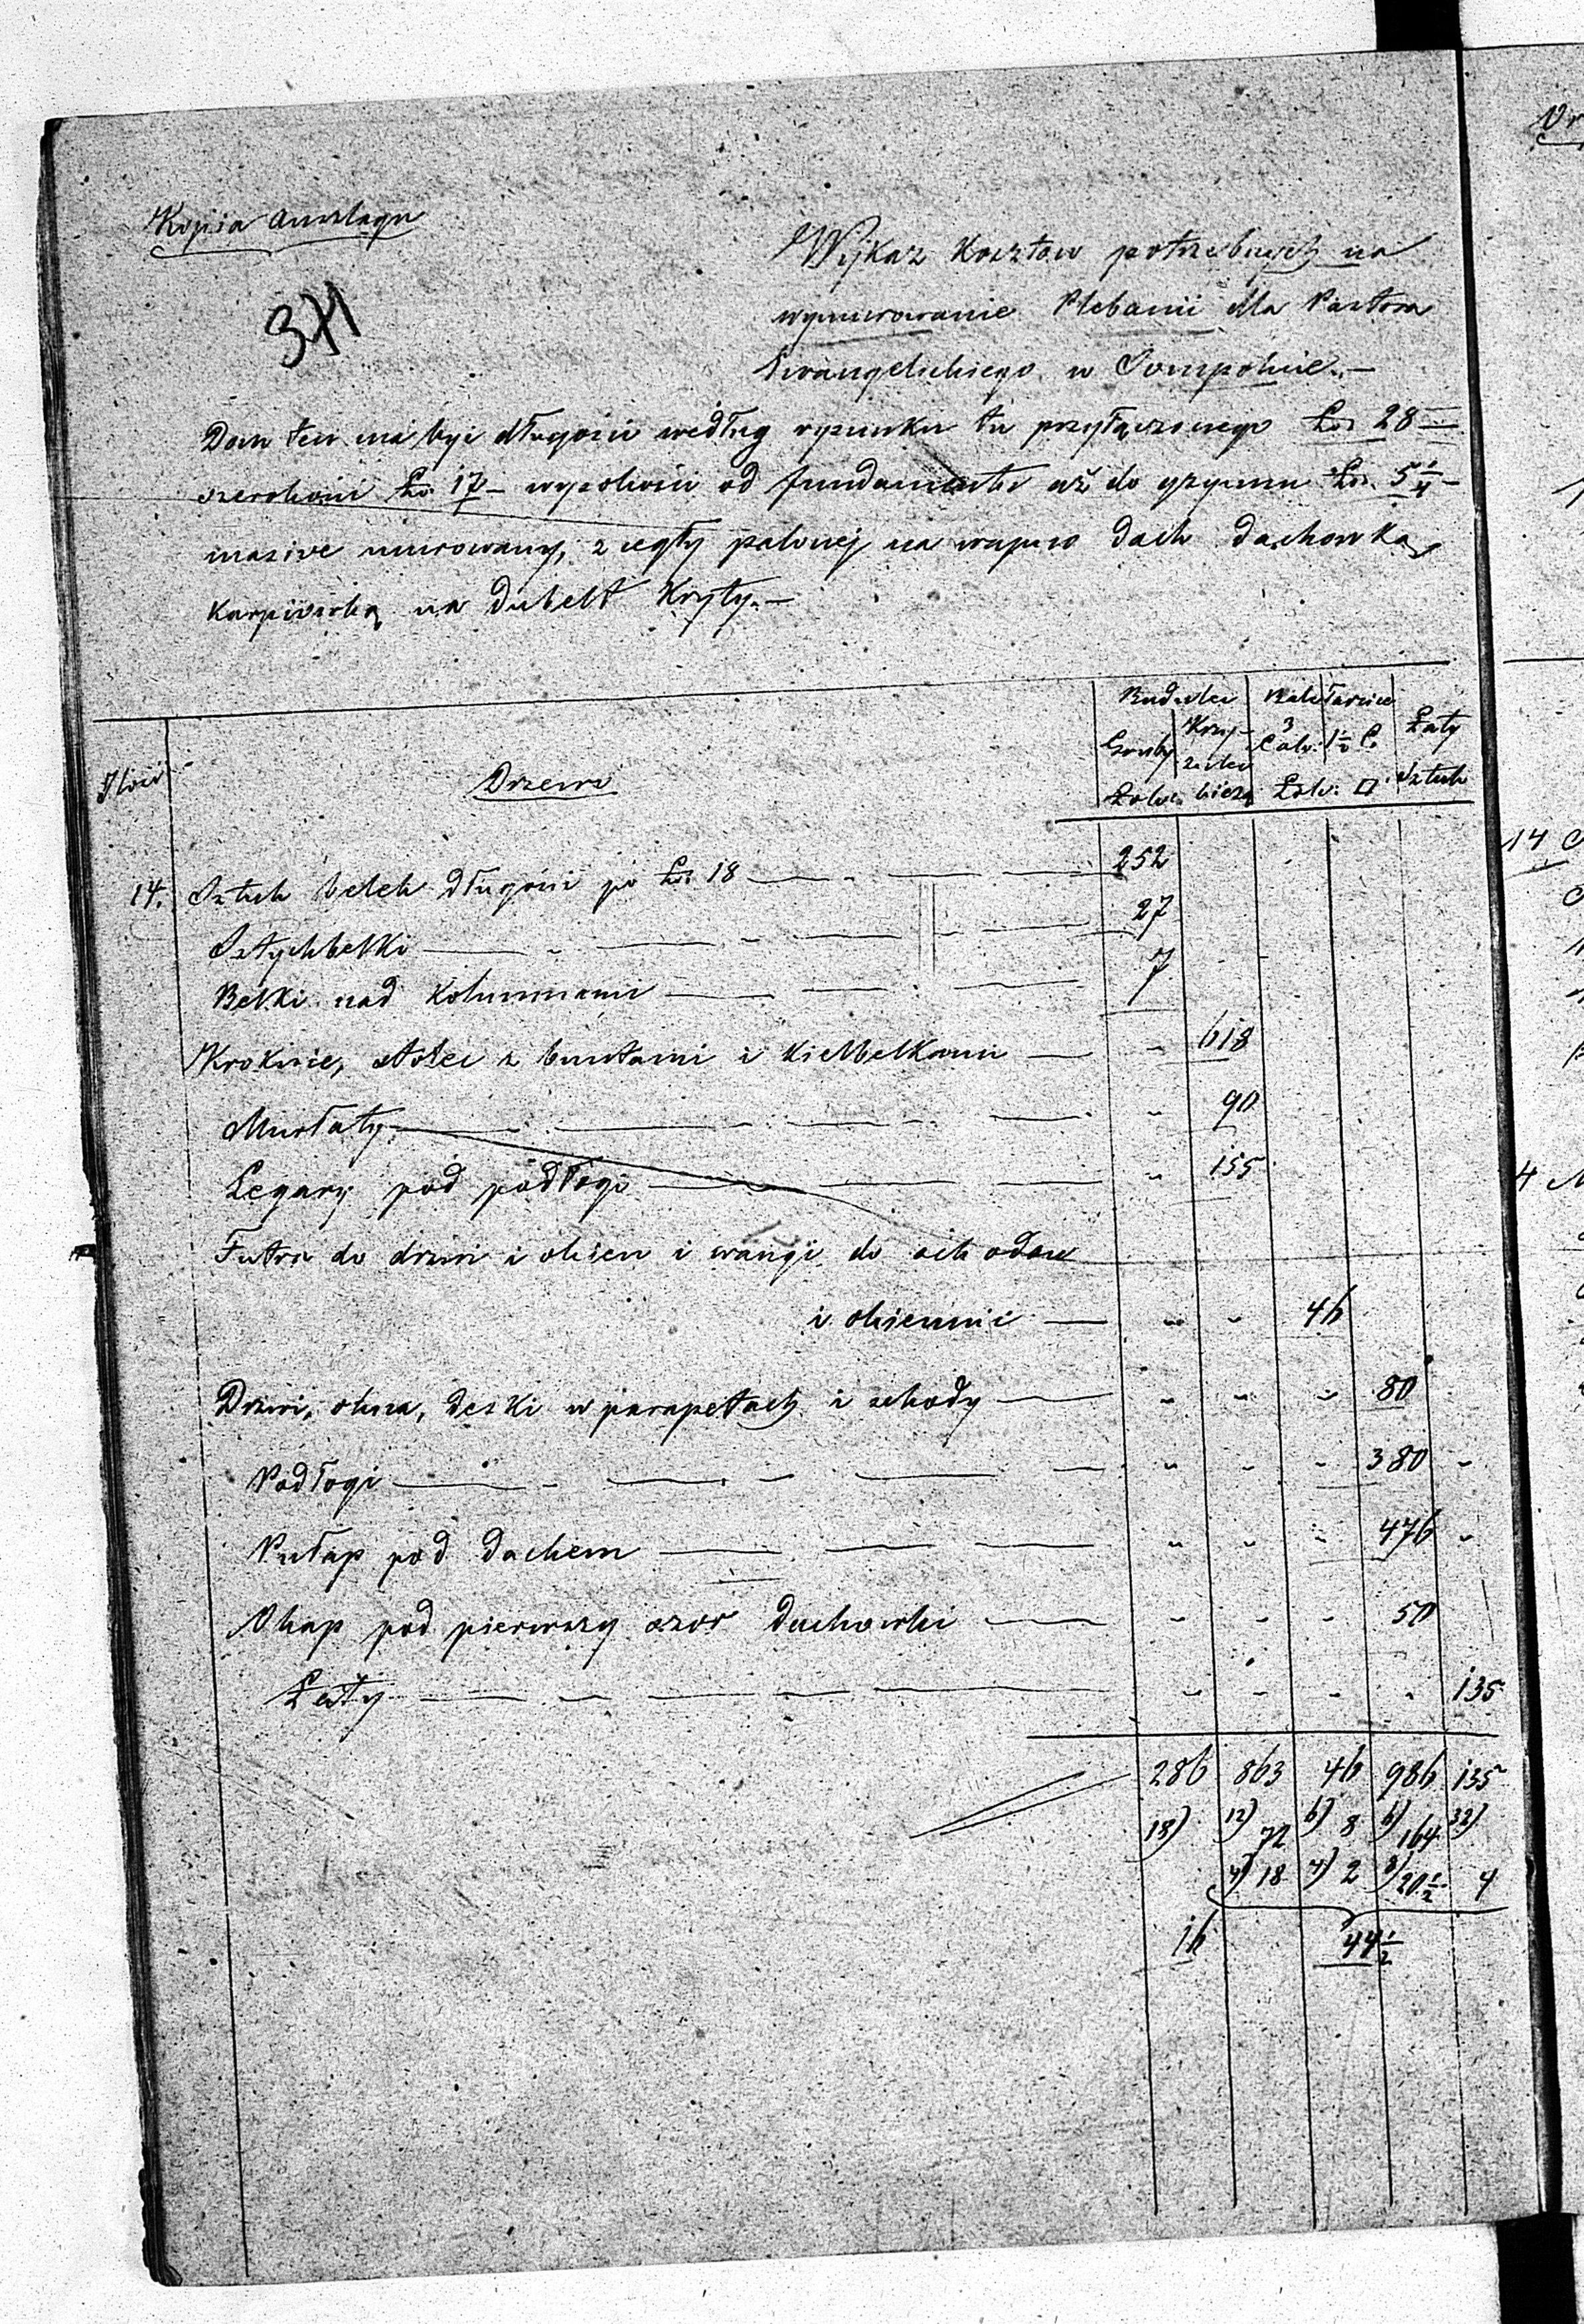 Kopia Anszlagu
371
Wykaz Kosztow potrzebnych na
wymurowanie Plebanii dla Pastora
Ewangelickiego w Sompolnie.—
Dom ten ma być długości według rysunku tu przyłączonego Łok. 28 —
szerokości Łok. 17 — wysokości od fundamentu aż do gzymsu Łok. 5 1/4 —
masive murowany, z cegły palonej na wapno dach dachowką
karpiowką na dubelt kryty.—
Budulec Bale Tarcice Łaty
Gruby Krzyżulec 3 Calo: 1 1/2 C. Sztuk
Ilość Drzewo Łokci bieżą Łok: □
14. Sztuk belek długości po Łok. 18 — 252
Sztychbelki — 27
Belki nad Kolumnami — 7
Krokwie, stolec z buntami i Kielbelkami — " 618
Murłaty — " 90
Legary pod podłogi — " 155
Futra do drzwi i okien i wangi do schodow
i okiennic — " " 46
Drzwi, okna, deski w parapetach i schody — " " " 80
Podłogi — " " " 380 "
Pułap pod dachem — " " " 476 "
Okap pod pierwszy szor dachowki — " " " 50
Łaty — " " " " 135
286 863 46 986 135
18) 12) 72 6) 8 6) 164 32)
4) 18 4) 2 8) 20 1/2 4
16 44 1/2